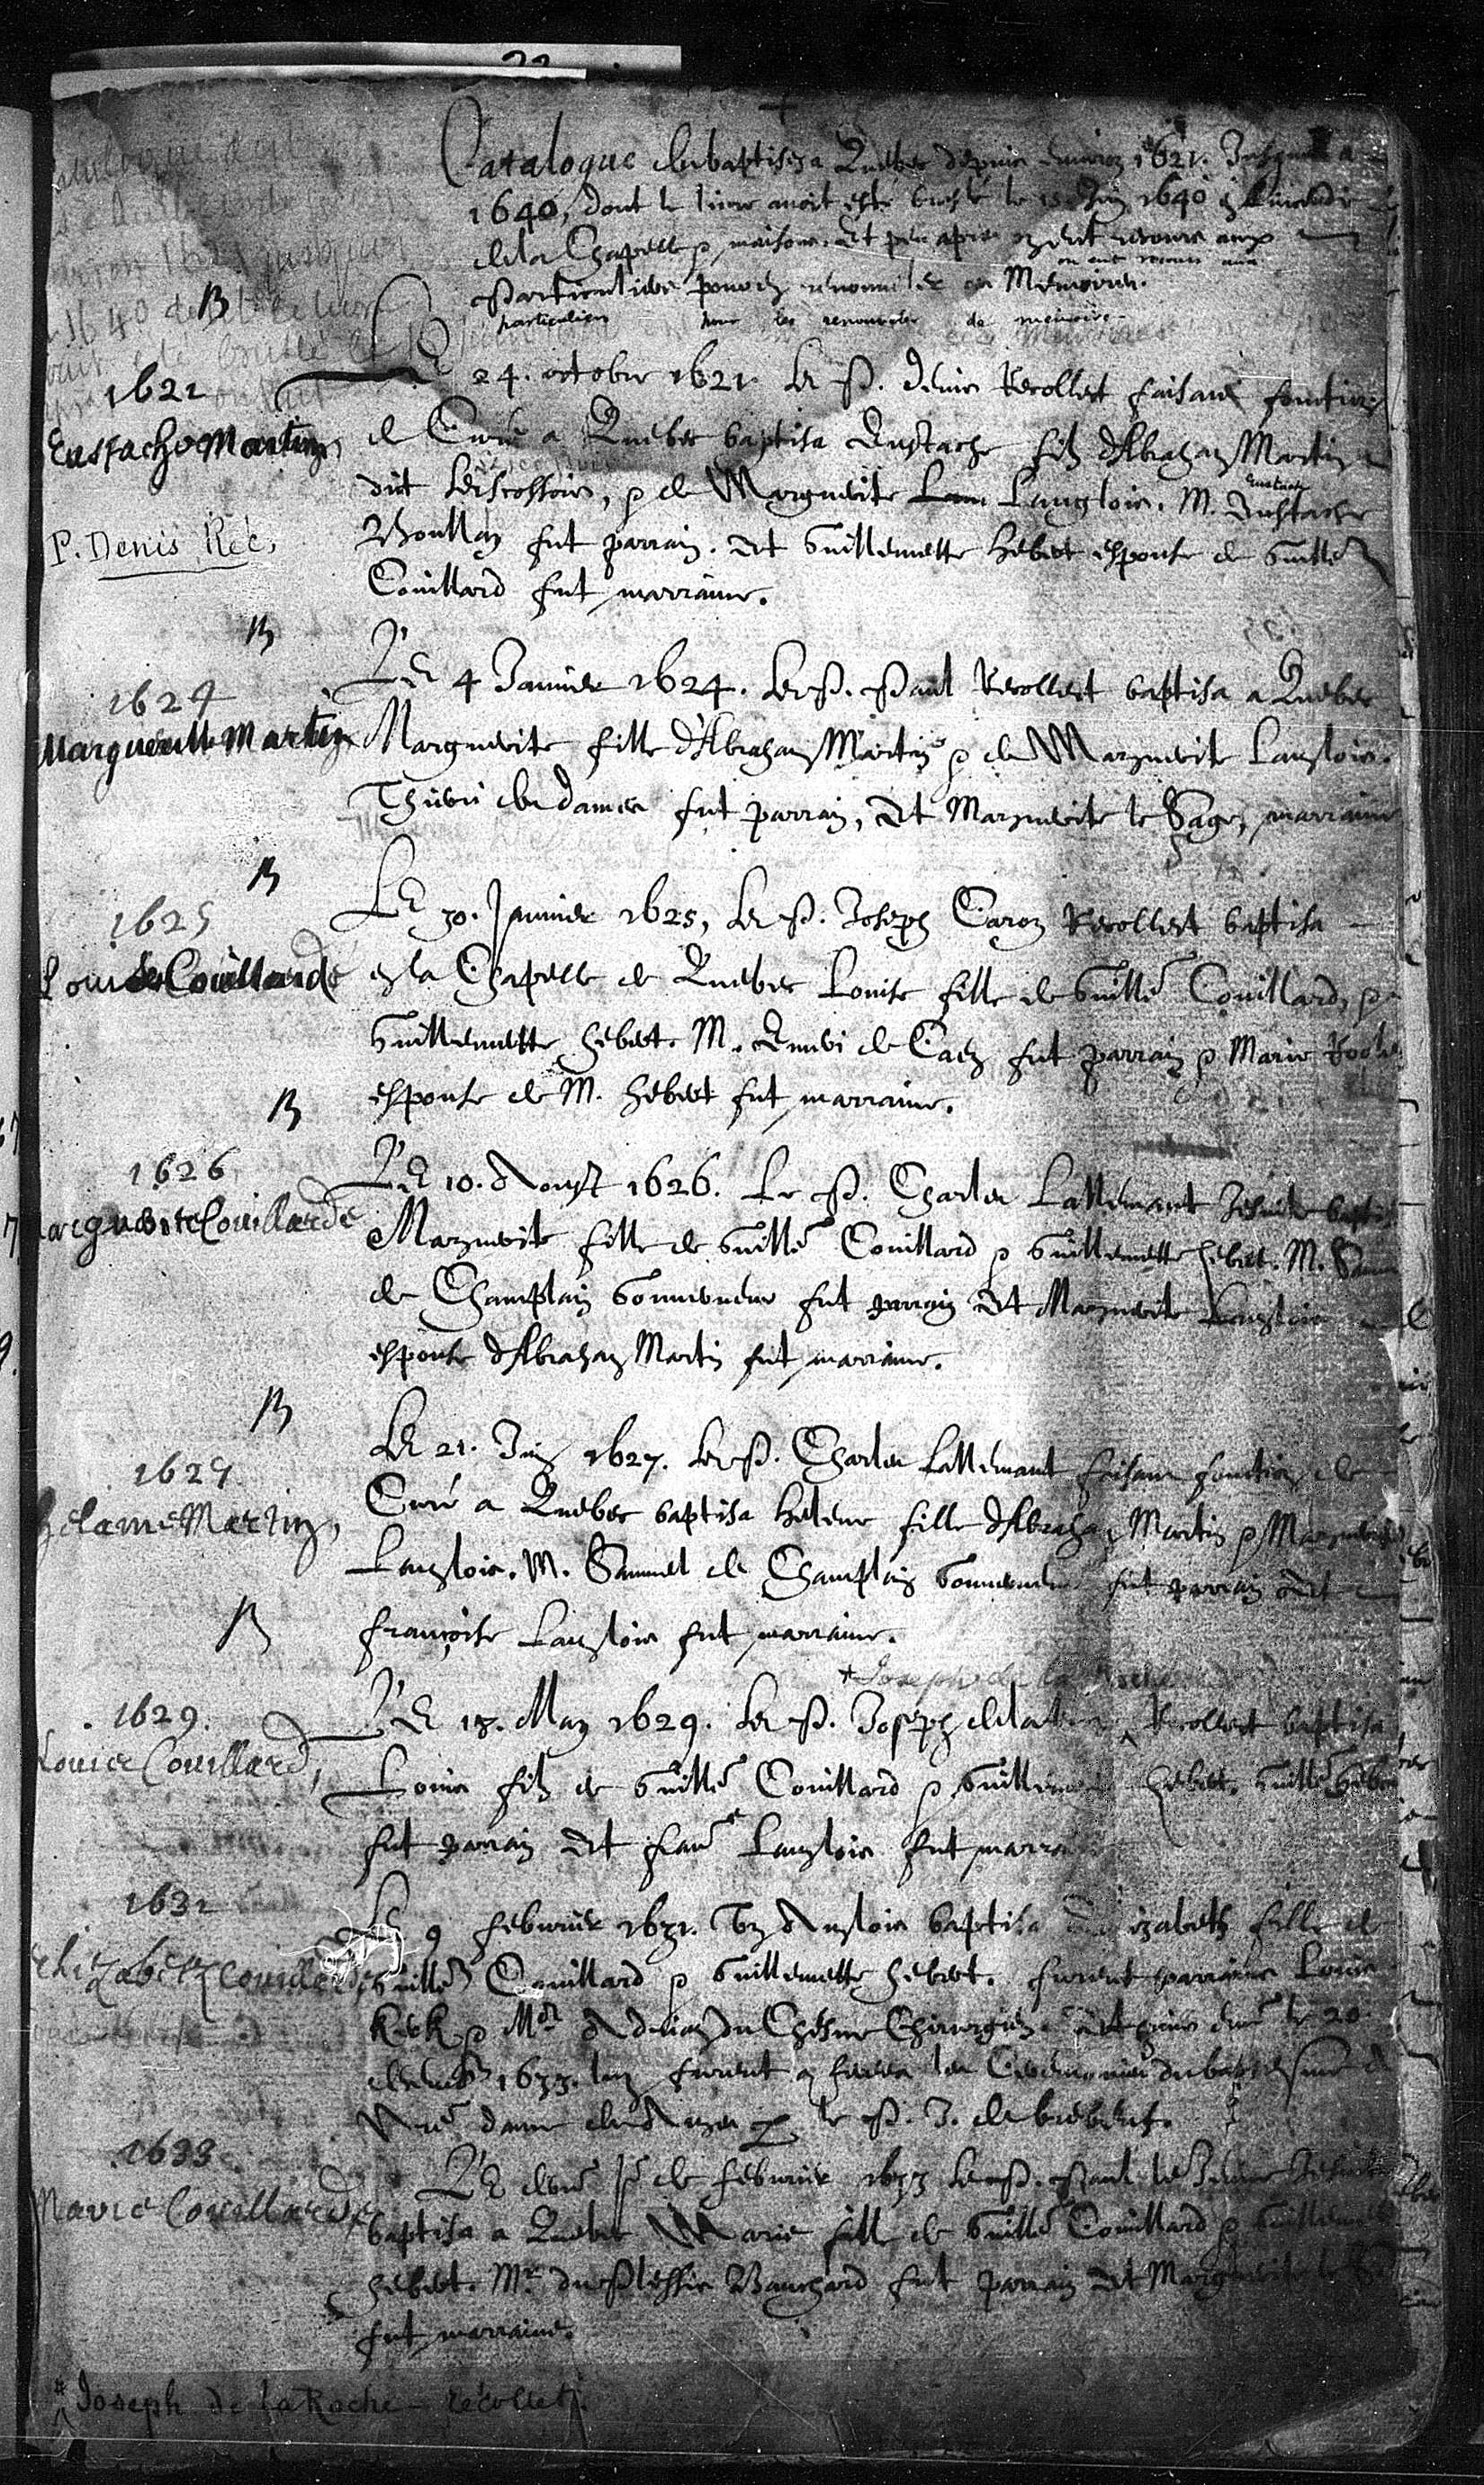 22
Catalogue des baptises a Quebec depuis environ 1621. Jusques a
1640, dont le livre avoit esté bruslé le 15 Juin 1640 en l'incendie
de la Chapelle & maison. Et peu apres on eut recours aux
on eut recours aux
Particuliers pour en renouveler ces Memoires.
particuliers pour les renouveler de mémoire.
B
1621
Eustache Martin,
P. Denis Réc.
Le 24. octobre 1621. Le P. Denis Recollect faisant fonction
de Curé a Quebec baptisa Eustache filz d'Abraham Martin
dit Lescossois, & de Marguerite Langlois. M. Eustache
Eustache
Boullay fut parrain. Et Guillemette hebert espouse de Guille
Couillard fut marraine.
B
1624
Marguerite Martin
Le 4 Janvier 1624. Le P. Paul Recollect baptisa a Quebec
Marguerite fille d'Abraham Martin & de Marguerite Langlois.
Thierri desdames fut parrain, Et Marguerite le Sage, marraine
B
1625
Louise Couillarde
Le 30. Janvier 1625, Le P. Joseph Caron Recollect baptisa
en la Chapelle de Quebec Louise fille de Guille Couillard, &
Guillemette hebert. M. Emeri de Caen fut parrain & Marie Rolet
espouse de M. hebert fut marraine.
B
1626
Marguerite Couillarde
Le 10. Aoust 1626. Le P. Charles Lallemant Jesuite bapti
Marguerite fille de Guille Couillard & Guillemette hebert. M. Sam
de Champlain Gouverneur fut parrain Et Marguerite Langlois
espouse d'Abraham Martin fut marraine.
B
1627
helaine Martin,
Le 21. Juin 1627. Le P. Charles Lallemant faisant fonction de
Curé a Quebec baptisa Helene fille d'Abraham Martin & Marguerite
Langlois. M. Samuel de Champlain Gouverneur fut parrain Et
françoise Langlois fut marraine.
B
+ Joseph de la Roche
1629.
Louis Couillard,
Le 18. May 1629. Le P. Joseph de la Recollect baptisa
Louis filz de Guille Couillard & Guillemette hebert. Guille heber
fut parrain Et franse Langlois fut marra
1631
Elizabeth Couillarde
Le 9 febvrier 1631. Un Anglois baptisa Elizabeth fille de
Guille Couillard & Guillemette hebert. furent parrains Louis
Kerk & Mr Adrian du Chesne Chirurgien. Et puis le 20
1633. luy furent les Ceremonies du baptesme
Nre dame des Anges par le P. J. de brebeuf.
1633
Marie Couillarde
Le de febvrier 1633 Le P. Paul le Jeune Jesuite
baptisa a Quebec Marie fille de Guille Couillard & Guilleme
hebert. Mr du Plessis Bauchard fut parrain Et Marguerite le
fut marraine.
* Joseph de la Roche - récollet.